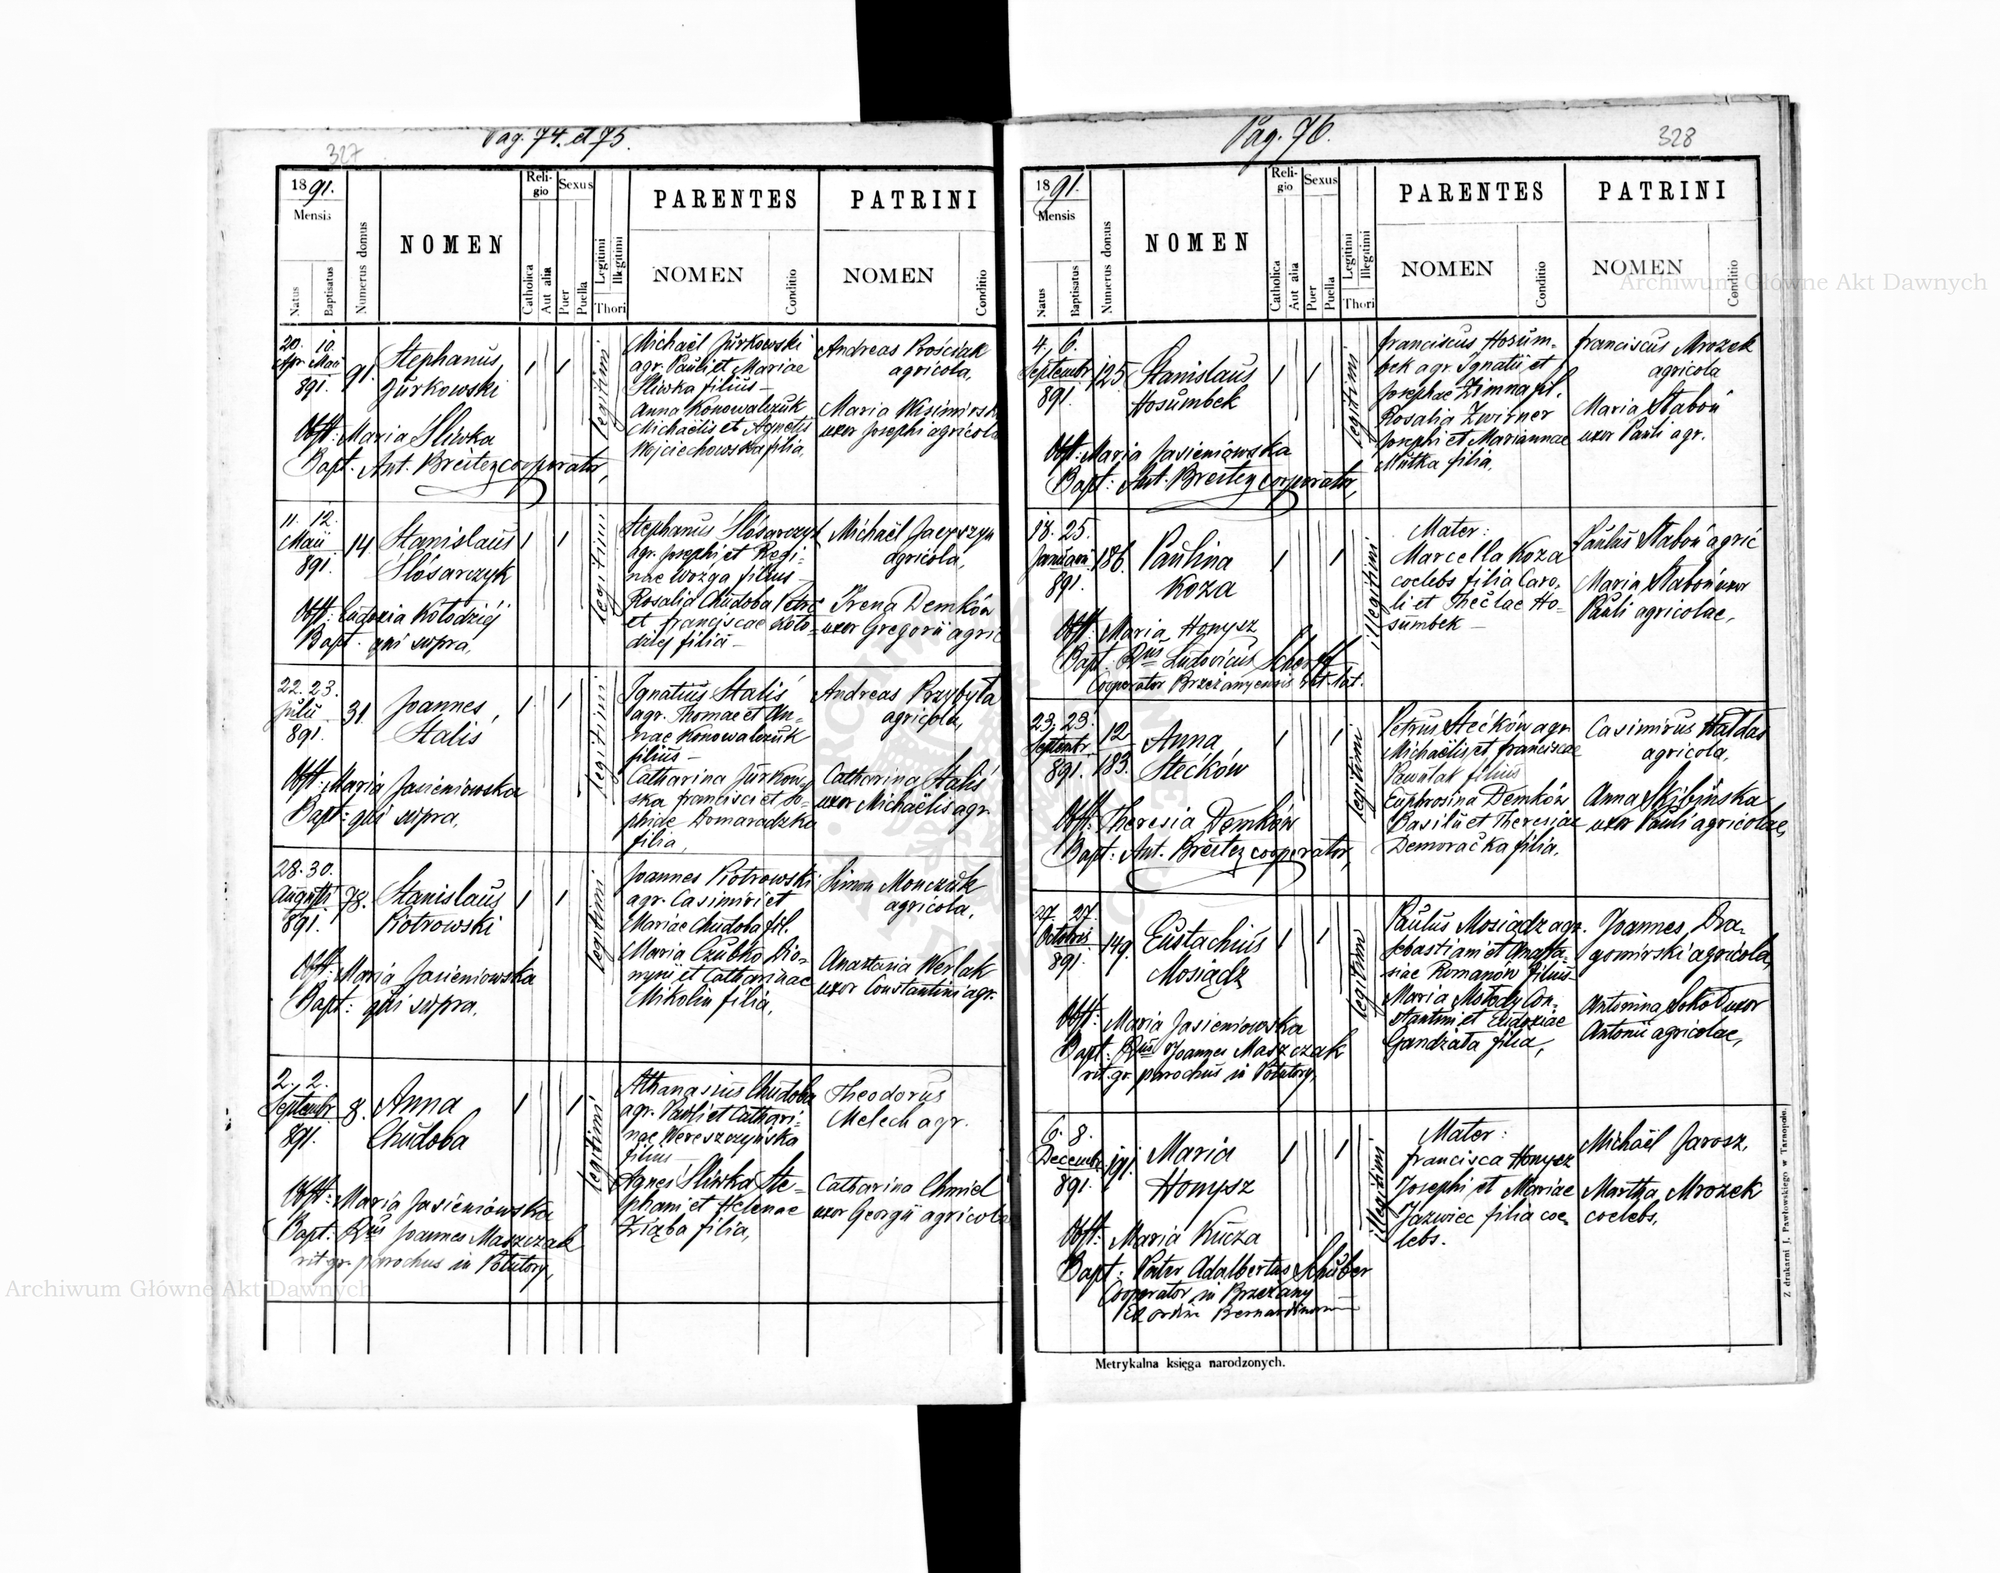 Pag. 74. et 75.
327
1891.
Mensis
Natus
Baptisatus
Numerus domus
NOMEN
Reli-
gio
Catholica
Aut alia
Sexus
Puer
Puella
Legitimi
Illegitimi
Thori
PARENTES
NOMEN
Conditio
PATRINI
NOMEN
Conditio
20. 10.
Apr. Maii
891.
91.
Stephanus
Jurkowski
legitimi
Michaël Jurkowski
agr. Pauli et Mariae
Sliwka filius –
Anna Konowalczuk
Michaëlis et Agnetis
Wojciechowska filia,
Andreas Prościak
agricola,
Maria
uxor Josephi agricola
Obst: Maria Sliwka
Bapt. Ant. Breitez cooperator,
11. 12.
Maii
891.
14.
Stanislaus
Slósarczyk
legitimi
Stephanus Slósarczyk
agr. Josephi et Regi-
nae Wozga filius –
Rosalia Chudoba Petri
et Franciscae Koło-
dziej filia –
Michaël
agricola,
Irena Demków
uxor Gregorii agric
Obst: Eudoxia Kołodziej
Bapt. qui supra,
22. 23.
Julii
891.
31
Joannes
Stalis
legitimi
Ignatius Stalis
agr. Thomae et An-
nae Konowalczuk
filius –
Catharina Jurkow-
ska Francisci et So-
phiae Domaradzka
filia,
Andreas Przybyła
agricola,
Catharina Stalis
uxor Michaëlis agr.
Obst: Maria Jasieniowska
Bapt: qui supra,
28. 30.
Augusti
891.
78.
Stanislaus
Piotrowski
legitimi
Joannes Piotrowski
agr. Casimiri et
Mariae Chudoba fil.
Maria Czubko Dio-
nysii et Catharinae
Mikolin filia,
Simon Monczak
agricola,
Anastasia Werlak
uxor Constantini agr.
Obst: Maria Jasieniowska
Bapt: qui supra,
2. 2.
Septembr.
891.
8.
Anna
Chudoba
legitimi
Athanasius Chudoba
agr. Pauli et Cathari-
nae Wereszczyńska
filius –
Agnes Sliwka Ste-
phani et Helenae
Ziąba filia,
Theodorus
Melech agr.
Catharina Chmiel
uxor Georgii agricola
Obst: Maria Jasieniowska
Bapt: Rus Joannes Maszczak
rit. gr. parochus in Potutory,
Pag. 76.
328
1891.
Mensis
Natus
Baptisatus
Numerus domus
NOMEN
Reli-
gio
Catholica
Aut alia
Sexus
Puer
Puella
Legitimi
Illegitimi
Thori
PARENTES
NOMEN
Conditio
PATRINI
NOMEN
Conditio
4. 6.
Septembr
891.
125.
Stanislaus
Hosumbek
legitimi
Franciscus Hosum-
bek agr. Ignatii et
Josephae Zimna fil.
Rosalia Zwirner
Josephi et Mariannae
Mutka filia,
Franciscus Mrozek
agricola
Maria Staboń
uxor Pauli agr.
Obst: Maria Jasieniowska
Bapt: Ant. Breitez cooperator,
18. 25.
Januarii
891.
186.
Paulina
Koza
illegitimi
Mater:
Marcella Koza
coelebs filia Caro-
li et Theclae Ho-
sumbek –
Paulus Staboń agric
Maria Staboń uxor
Pauli agricolae,
Obst: Maria Honysz
Bapt. Rus Ludovicus Scherff
Cooperator Brzezanyensis rit. lat.
23. 23.
Septembr.
891.
12
183.
Anna
Stećków
legitimi
Petrus Stećków agr.
Michaëlis et Franciscae
Pawulak filius
Euphrosina Demków
Basilii et Theresiae
Demoraćka filia,
Casimirus Hałdas
agricola,
Anna Skibińska
uxor Pauli agricolae,
Obst: Theresia Demków
Bapt: Ant. Breitez cooperator,
27. 27.
Octobris
891.
149.
Eustachius
Mosiądz
legitimi
Paulus Mosiądz agr.
Sebastiani et Anasta-
siae Romanów filius
Maria Mołody Con-
stantini et Eudoxiae
Gandziała filia,
Joannes Dra-
gomirski agricola,
Antonina Sokoł uxor
Antonii agricolae,
Obst: Maria Jasieniowska
Bapt: Rus Joannes Maszczak
rit. gr. parochus in Potutory,
6. 8.
Decembr
891.
191.
Maria
Honysz
illegitimi
Mater:
Francisca Honysz
Josephi et Mariae
Jazwiec filia coe-
lebs.
Michaël Jarosz,
Martha Mrozek
coelebs,
Obst: Maria Kucza
Bapt: Pater Adalbertus Schuber
Cooperator in Brzezany
Ex ordine Bernardinorum
Metrykalna księga narodzonych.
Z drukarni J. Pawłowskiego w Tarnopolu.
Archiwum Główne Akt Dawnych
Archiwum Główne Akt Dawnych